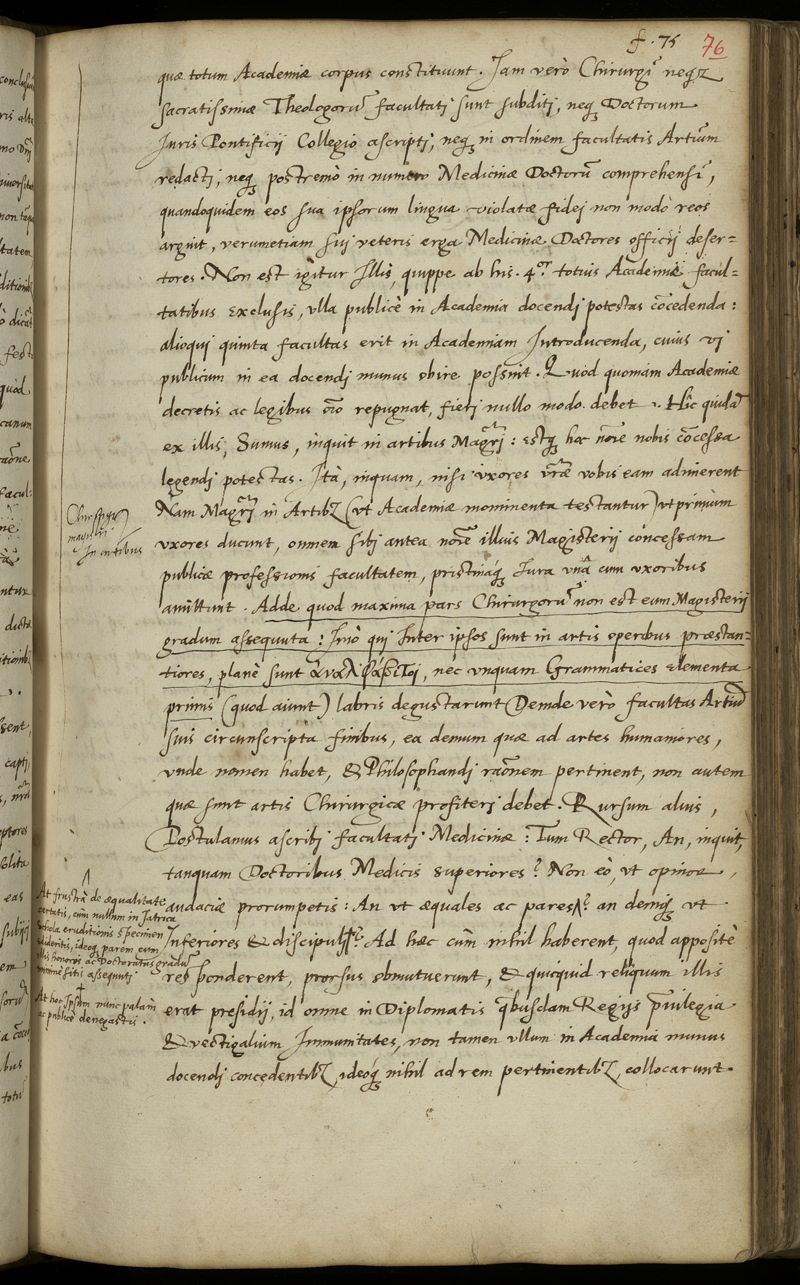 f. 75 76
quæ totum Academiæ corpus constituunt. Jam verò Chirurgi neqʒ
sacratissimæ Theologorū facultati sunt subditi, neqʒ Doctorum
Juris Pontificij Collegio ascripti, neqʒ in ordinem facultatis Artium
redacti, neqʒ postremò in numero Medicinæ Doctorū comprehensi,
quandoquidem eos sua ipsorum lingua violatæ fidei non modò reos
arguit, verumetiam sui veteris erga Medicinæ Doctores officij deser=
tores. Non est igitur Illis, quippe ab his. 4.or totius Academiæ facul=
tatibus exclusis, vlla publicè in Academia docendi potestas cōcedenda:
alioqui quinta facultas erit in Academiam Introducenda, cuius vi
publicum in ea docendi munus obire possint. Quod quoniam Academiæ
decretis ac legibus oīo repugnat, fieri nullo modo debet. Hic quidā
ex illis, Sumus, inquit in artibus Magr̄i: estqʒ hoc noīe nobis cōcessa
legendi potestas. Ità, inquam, nisi vxores vr̄æ vobis eam adimerent
Nam Magr̄i in Artibʒ (vt Academiæ monimenta testantur) vt primum
vxores ducunt, omnem sibi antea noīe illius Magisterij concessam
publicæ professionis facultatem, pristinaqʒ Jura vnà cum vxoribus
amittunt. Adde quod maxima pars Chirurgorū non est eum Magisterij
gradum assequuta: Imò qui Inter ipsos sunt in artis operibus præstan=
tiores, planè sunt ἀναλφάβητοι, nec vnquam Grammatices elementa
primis (quod aiunt) labris degustarunt Deinde verò facultas Artiū
suis circunscripta finibus, ea demum quæ ad artes humaniores,
vnde nomen habet, & Philosophandi raōnem pertinent, non autem
quæ sunt artis Chirurgicæ profiteri debet. Rursum alius,
Postulamus ascribi facultati Medicinæ: Tum Rector, An, inquit,
tanquam Doctoribus Medicis superiores? Non eò, vt opinor,
audaciæ prorumpetis: An vt æquales ac pares? an deniqʒ vt
Inferiores & discipuli? Ad hæc cùm nihil haberent, quod appositè
responderent, prorsus obmutuerunt, & quicquid reliquum illis
erat presidij, id omne in Diplomatis qbusdam Regijs priuilegia
& vectigalium Immunitates, non tamen vllum in Academia munus
docendi concedentibʒ, ideoqʒ nihil ad rem pertinentibʒ, collocarunt.
Chirurgi
magistri
In artibus
At frustrà de æqualitate
certatis, cùm nullum in Iatrica
schola eruditionis specimen
dederitis, ideoqʒ parem cum
illis honoris ac Doctoratus gradū
minimè sitis assequuti.
At hoc Ipsum nunc palàm
ac publicè denegastis.